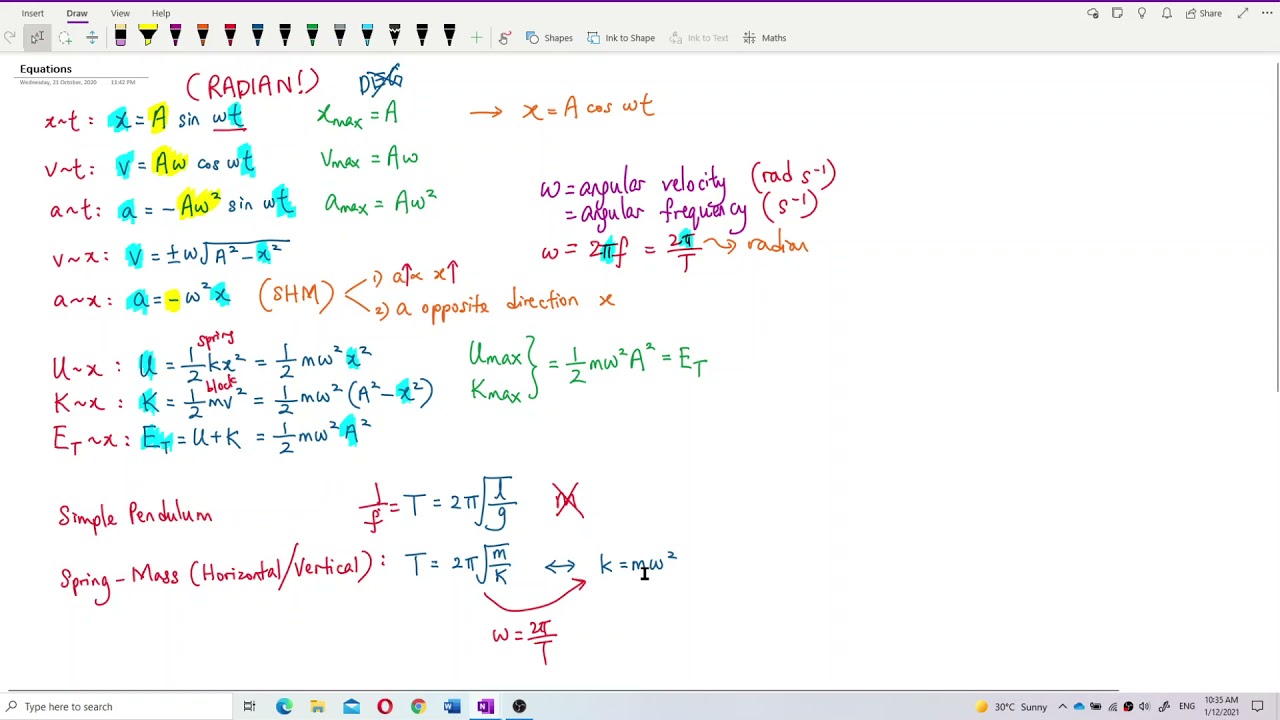 Insert Draw View Share
Shapes Ink to Shape Ink to Text Maths
Equations
Wednesday, 21 October, 2020 11:42 PM
(RADIAN!) DEG
x~t: x = A sin ωt x_max = A → x = A cos ωt
v~t: v = Aω cos ωt v_max = Aω
a~t: a = -Aω² sin ωt a_max = Aω²
ω = angular velocity (rad s⁻¹)
= angular frequency (s⁻¹)
ω = 2πf = 2π/T ⤳ radian
v~x: v = ±ω√(A² - x²)
a~x: a = -ω²x (SHM)
1) a↑ ∝ x↑
2) a opposite direction x
spring
U~x: U = 1/2 kx² = 1/2 mω²x²
block
K~x: K = 1/2 mv² = 1/2 mω²(A² - x²)
E_T~x: E_T = U + K = 1/2 mω²A²
U_max
K_max } = 1/2 mω²A² = E_T
Simple Pendulum 1/f = T = 2π√(l/g) m
Spring-Mass (Horizontal/Vertical): T = 2π√(m/k) ↔ k = mω²
ω = 2π/T
Type here to search
30°C Sunny ENG 10:35 AM
1/12/2021